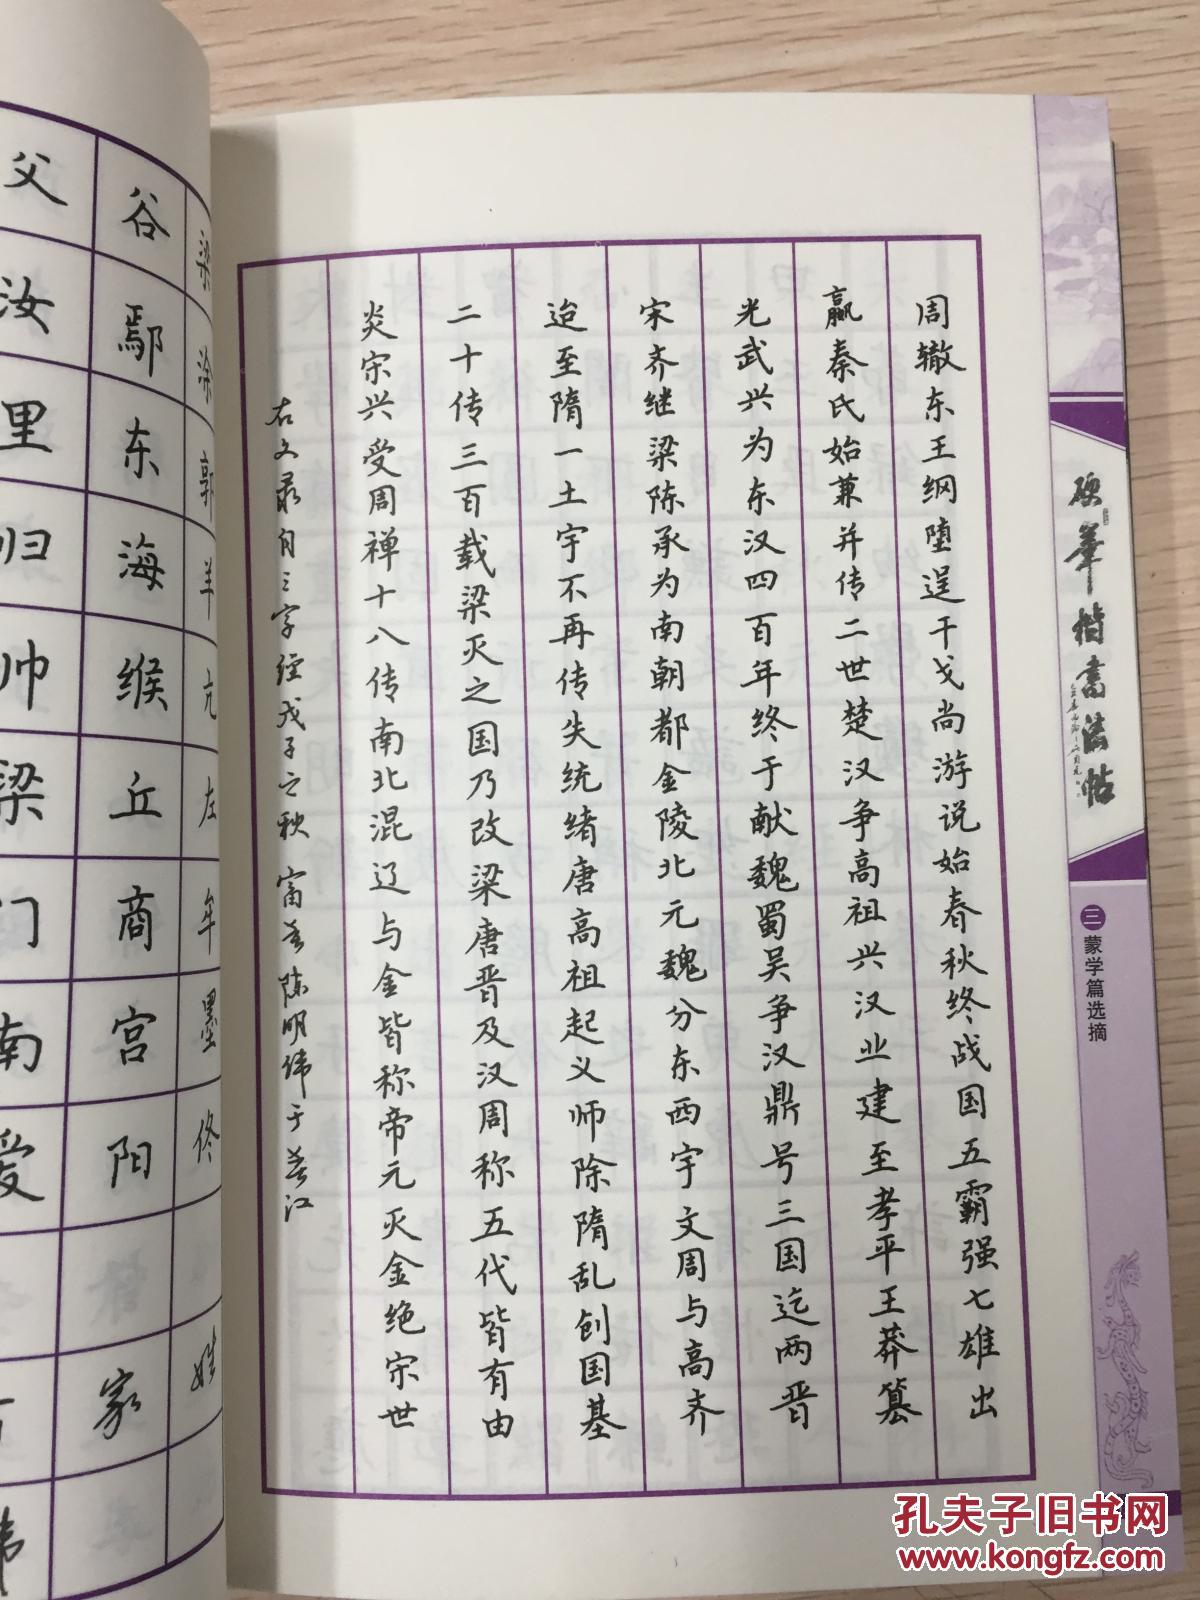 周辙东王纲堕逞干戈尚游说始春秋终战国五霸强七雄出
嬴秦氏始兼并传二世楚汉争高祖兴汉业建至孝平王莽篡
光武兴为东汉四百年终于献魏蜀吴争汉鼎号三国迄两晋
宋齐继梁陈承为南朝都金陵北元魏分东西宇文周与高齐
迨至隋一土宇不再传失统绪唐高祖起义师除隋乱创国基
二十传三百载梁灭之国乃改梁唐晋及汉周称五代皆有由
炎宋兴受周禅十八传南北混辽与金皆称帝元灭金绝宋世
右文录自三字经戊子之秋 富春陈明纬于春江
硬笔楷书法帖
三 蒙学篇选摘
梁涂郭羊亢左牟墨佟 姓
谷鄢东海缑丘商宫阳 家
父汝里归帅梁门南爱
孔夫子旧书网
www.kongfz.com